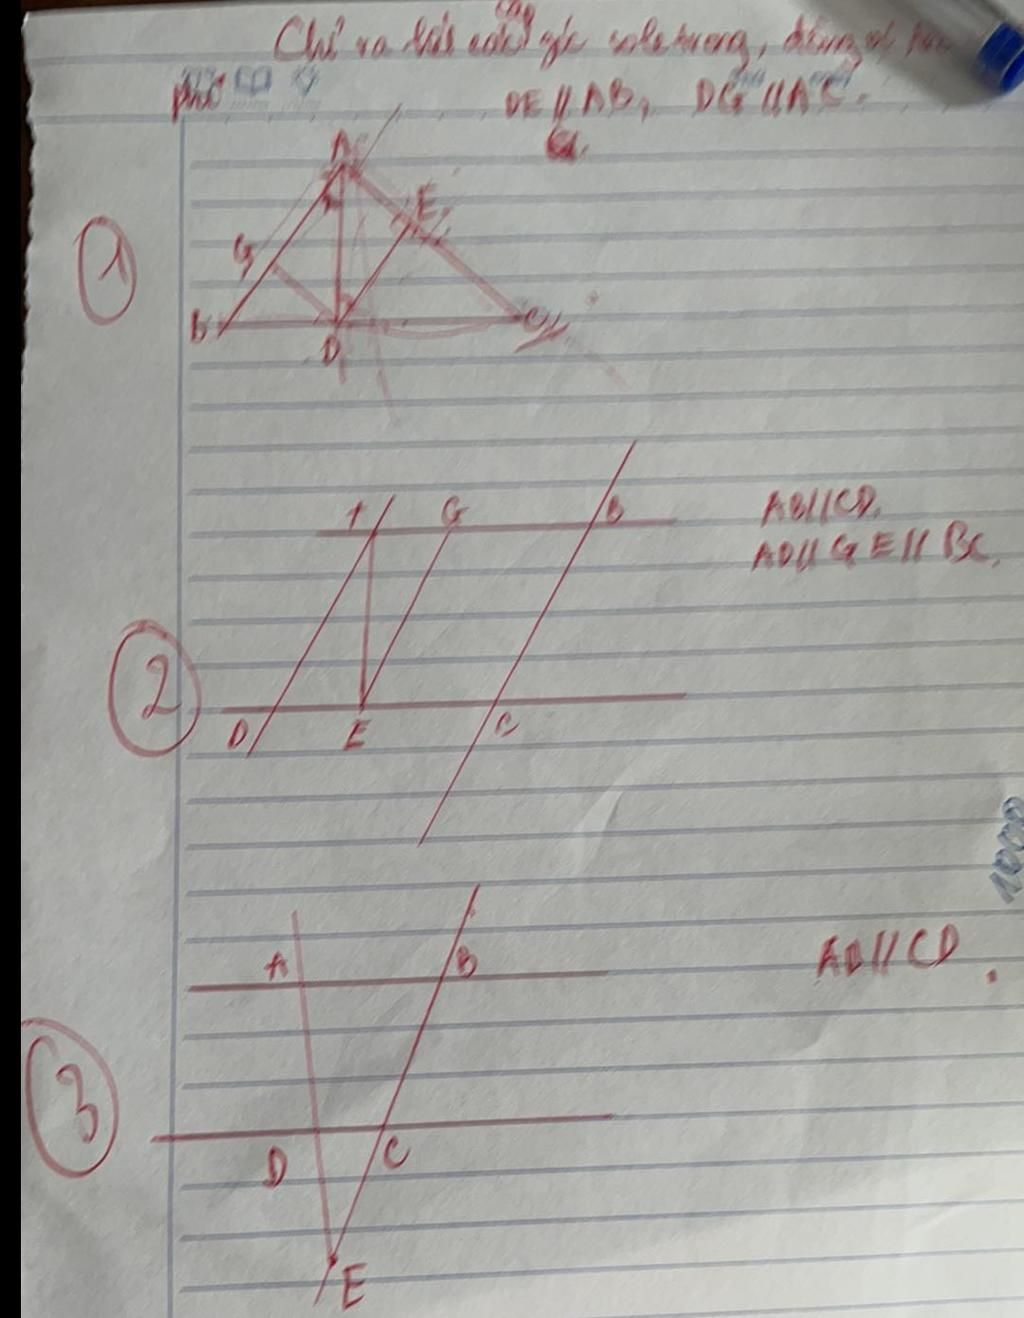 Chỉ ra tất cả các góc sole trong, đồng vị
DE // AB, DG // AC.
A
E
G
B
D
C
1
A G B
AB // CD,
AD // GE // BC,
2
D E C
A B
AB // CD.
3
D C
E
1000